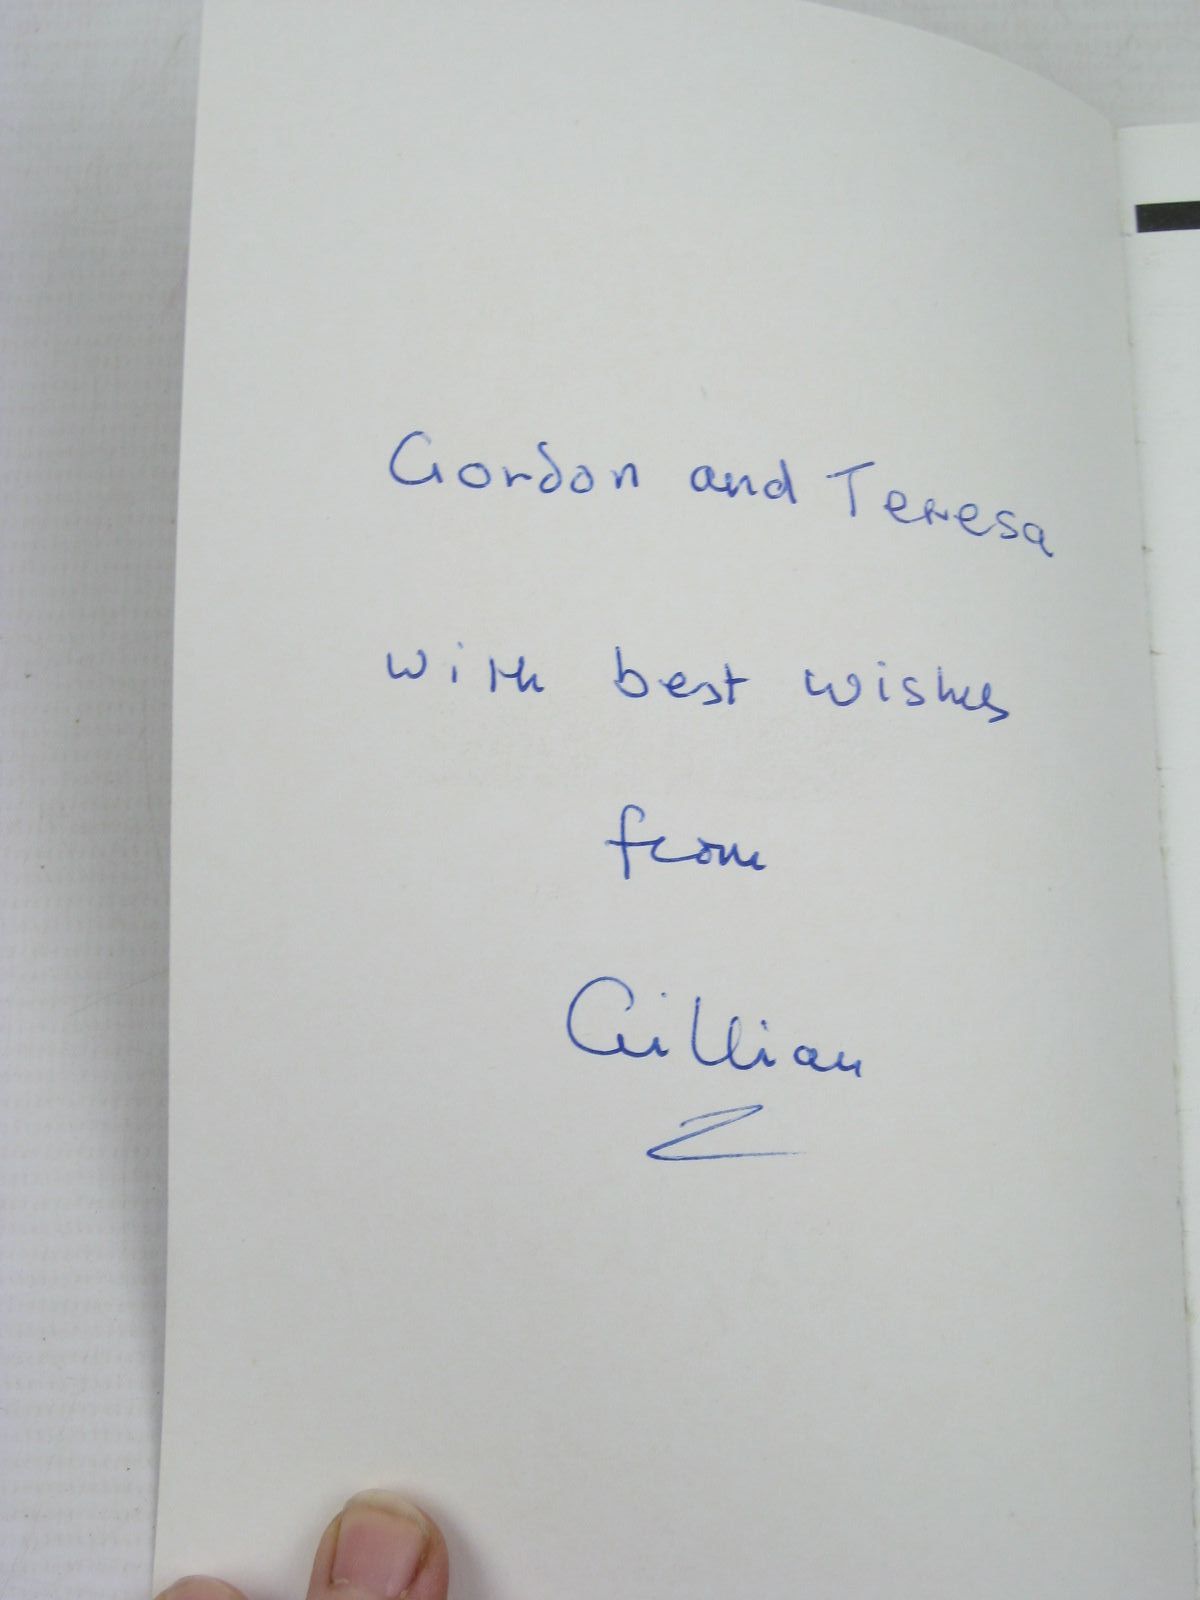 Gordon and Teresa
with best wishes
from
Gillian